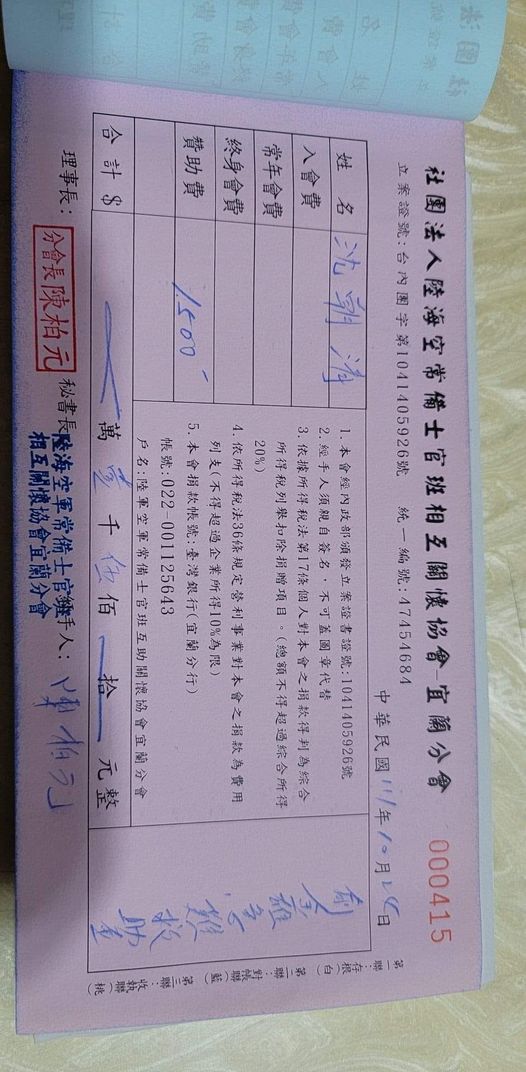 社團法人陸海空常備士官班相互關懷協會 宜蘭分會
000415
立案證號:台內團字第1041405926號 統一編號:47454684
中華民國111年10月 日
姓名 沈
入會費
常年會費
終身會費
贊助費 1,500
合計$ 萬壹千伍佰 拾 元整
1. 本會經內政部頒發立案證書證號:1041405926號
2. 經手人須親自簽名,不可蓋圖章代替
3. 依據所得稅法第17條個人對本會之捐款得判為綜合
所得稅列舉扣除捐贈項目。(總額不得超過綜合所得
20%)
4. 依所得稅法36條規定營利事業對本會之捐款為費用
列支(不得超過企業所得10%為限)
5. 本會捐款帳號:臺灣銀行(宜蘭分行)
帳號:022-001125643
戶名:陸軍空軍常備士官班互助關懷協會宜蘭分會
急難救
助金
理事長:
分會長陳柏元
秘書長
陸海空軍常備士官班
相互關懷協會宜蘭分會
經手人: 陳柏元
第一聯:存根(白)
第二聯:對帳聯(藍)
第三聯:收執聯(桃)